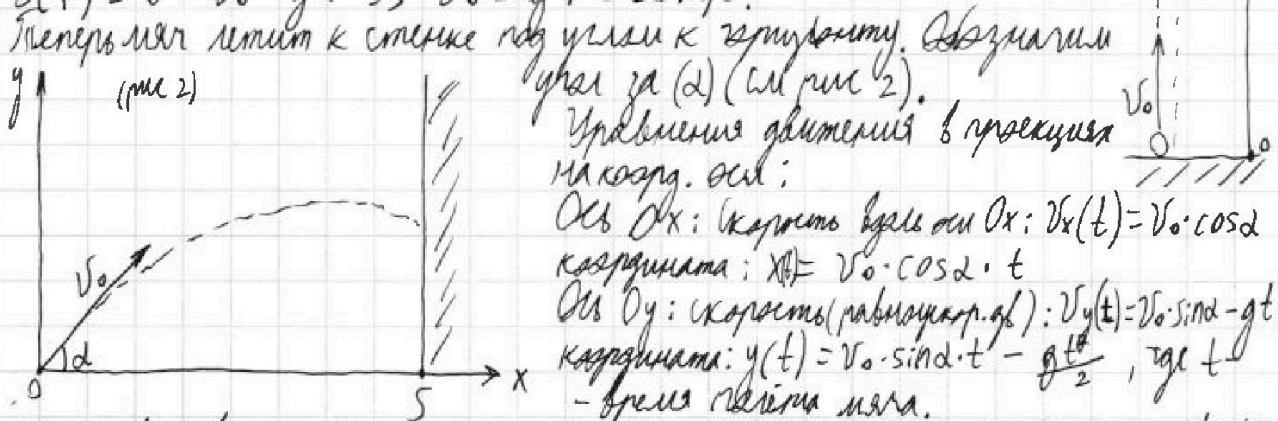 Теперь мяч летит к стенке под углом к горизонту. Обозначим
угол за (α) (см рис 2).
Уравнения движения в проекциях
на коорд. оси:
Ось Ox: скорость вдоль оси Ox: Vx(t) = V₀·cosα
координата: x(t) = V₀·cosα·t
Ось Oy: скорость (равноускор. дв): Vy(t) = V₀·sinα - gt
координата: y(t) = V₀·sinα·t - gt²/2, где t -
- время полёта мяча.
y
(рис 2)
V₀
α
0
S
x
V₀
0